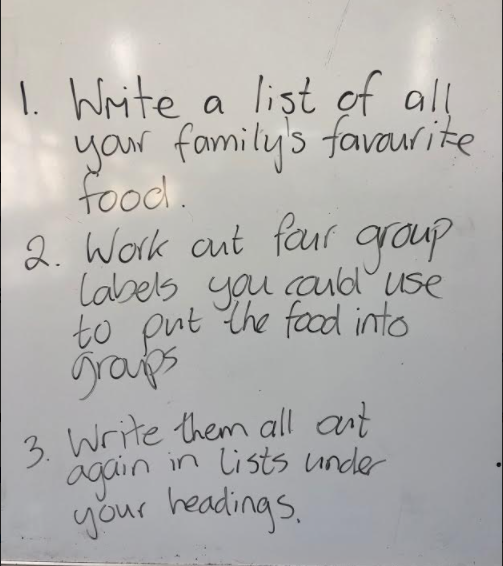 1. Write a list of all
your family's favourite
food.
2. Work out four group
labels you could use
to put the food into
groups
3. Write them all out
again in lists under
your headings.